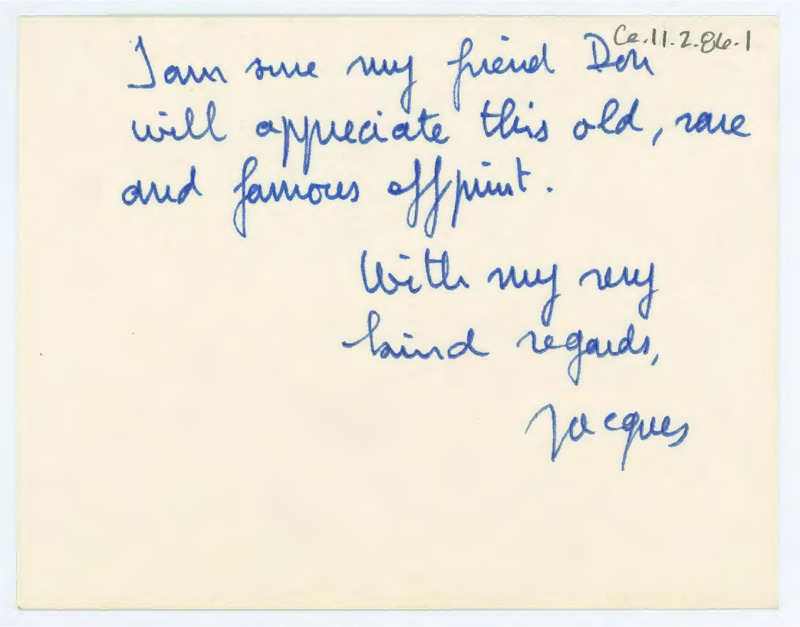 Ce.11.2.86.1
I am sure my friend Don
will appreciate this old, rare
and famous offprint.
With my very
kind regards,
Jacques